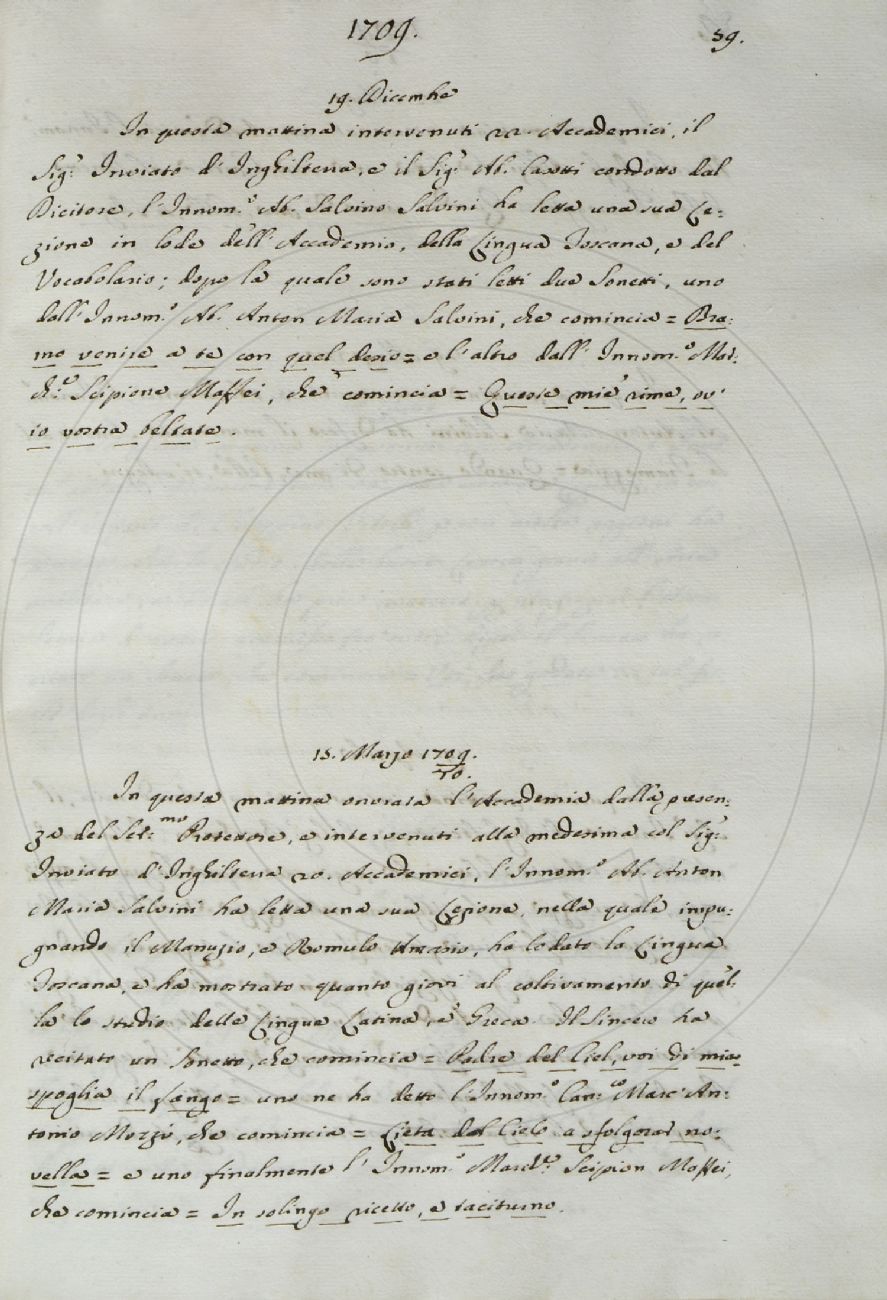 1709.
59.
19. Dicembre
In questa mattina intervenuti 22. Accademici, il
Sig.r Inviato d'Inghilterra, e il Sig.r Ab. Casotti condotto dal
Dicitore, l'Innom.o Ab. Salvino Salvini ha letta una sua Le=
zione in lode dell'Accademia, della Lingua Toscana, e del
Vocabolario; dopo la quale sono stati letti due Sonetti, uno
dall'Innom.o Ab. Anton Maria Salvini, che comincia = Bra=
mo venire a te con quel desio = e l'altro dall'Innom.o Mar=
ch.e Scipione Maffei, che comincia = Queste mie rime, ov'
io vostra beltate.
15. Marzo 1709/10.
In questa mattina onorata l'Accademia dalla presen=
za del Ser.mo Protettore, e intervenuti alla medesima col Sig.r
Inviato d'Inghilterra 20. Accademici, l'Innom.o Ab. Anton
Maria Salvini ha letta una sua Lezione, nella quale impu=
gnando il Manuzio, e Romulo Amaseo, ha lodato la Lingua
Toscana, e ha mostrato quanto giovi al coltivamento di quel=
la lo studio delle Lingue Latina, e Greca. Il Sincero ha
recitato un Sonetto, che comincia = Padre del Ciel, voi di mia
spoglia il fango = uno ne ha detto l'Innom.o Can.co Marc'An=
tonio Mozzi, che comincia = Lieta del Cielo a sfolgorar no=
vella = e uno finalmente l'Innom.o March.e Scipion Maffei,
che comincia = In solingo ricetto, e taciturno.